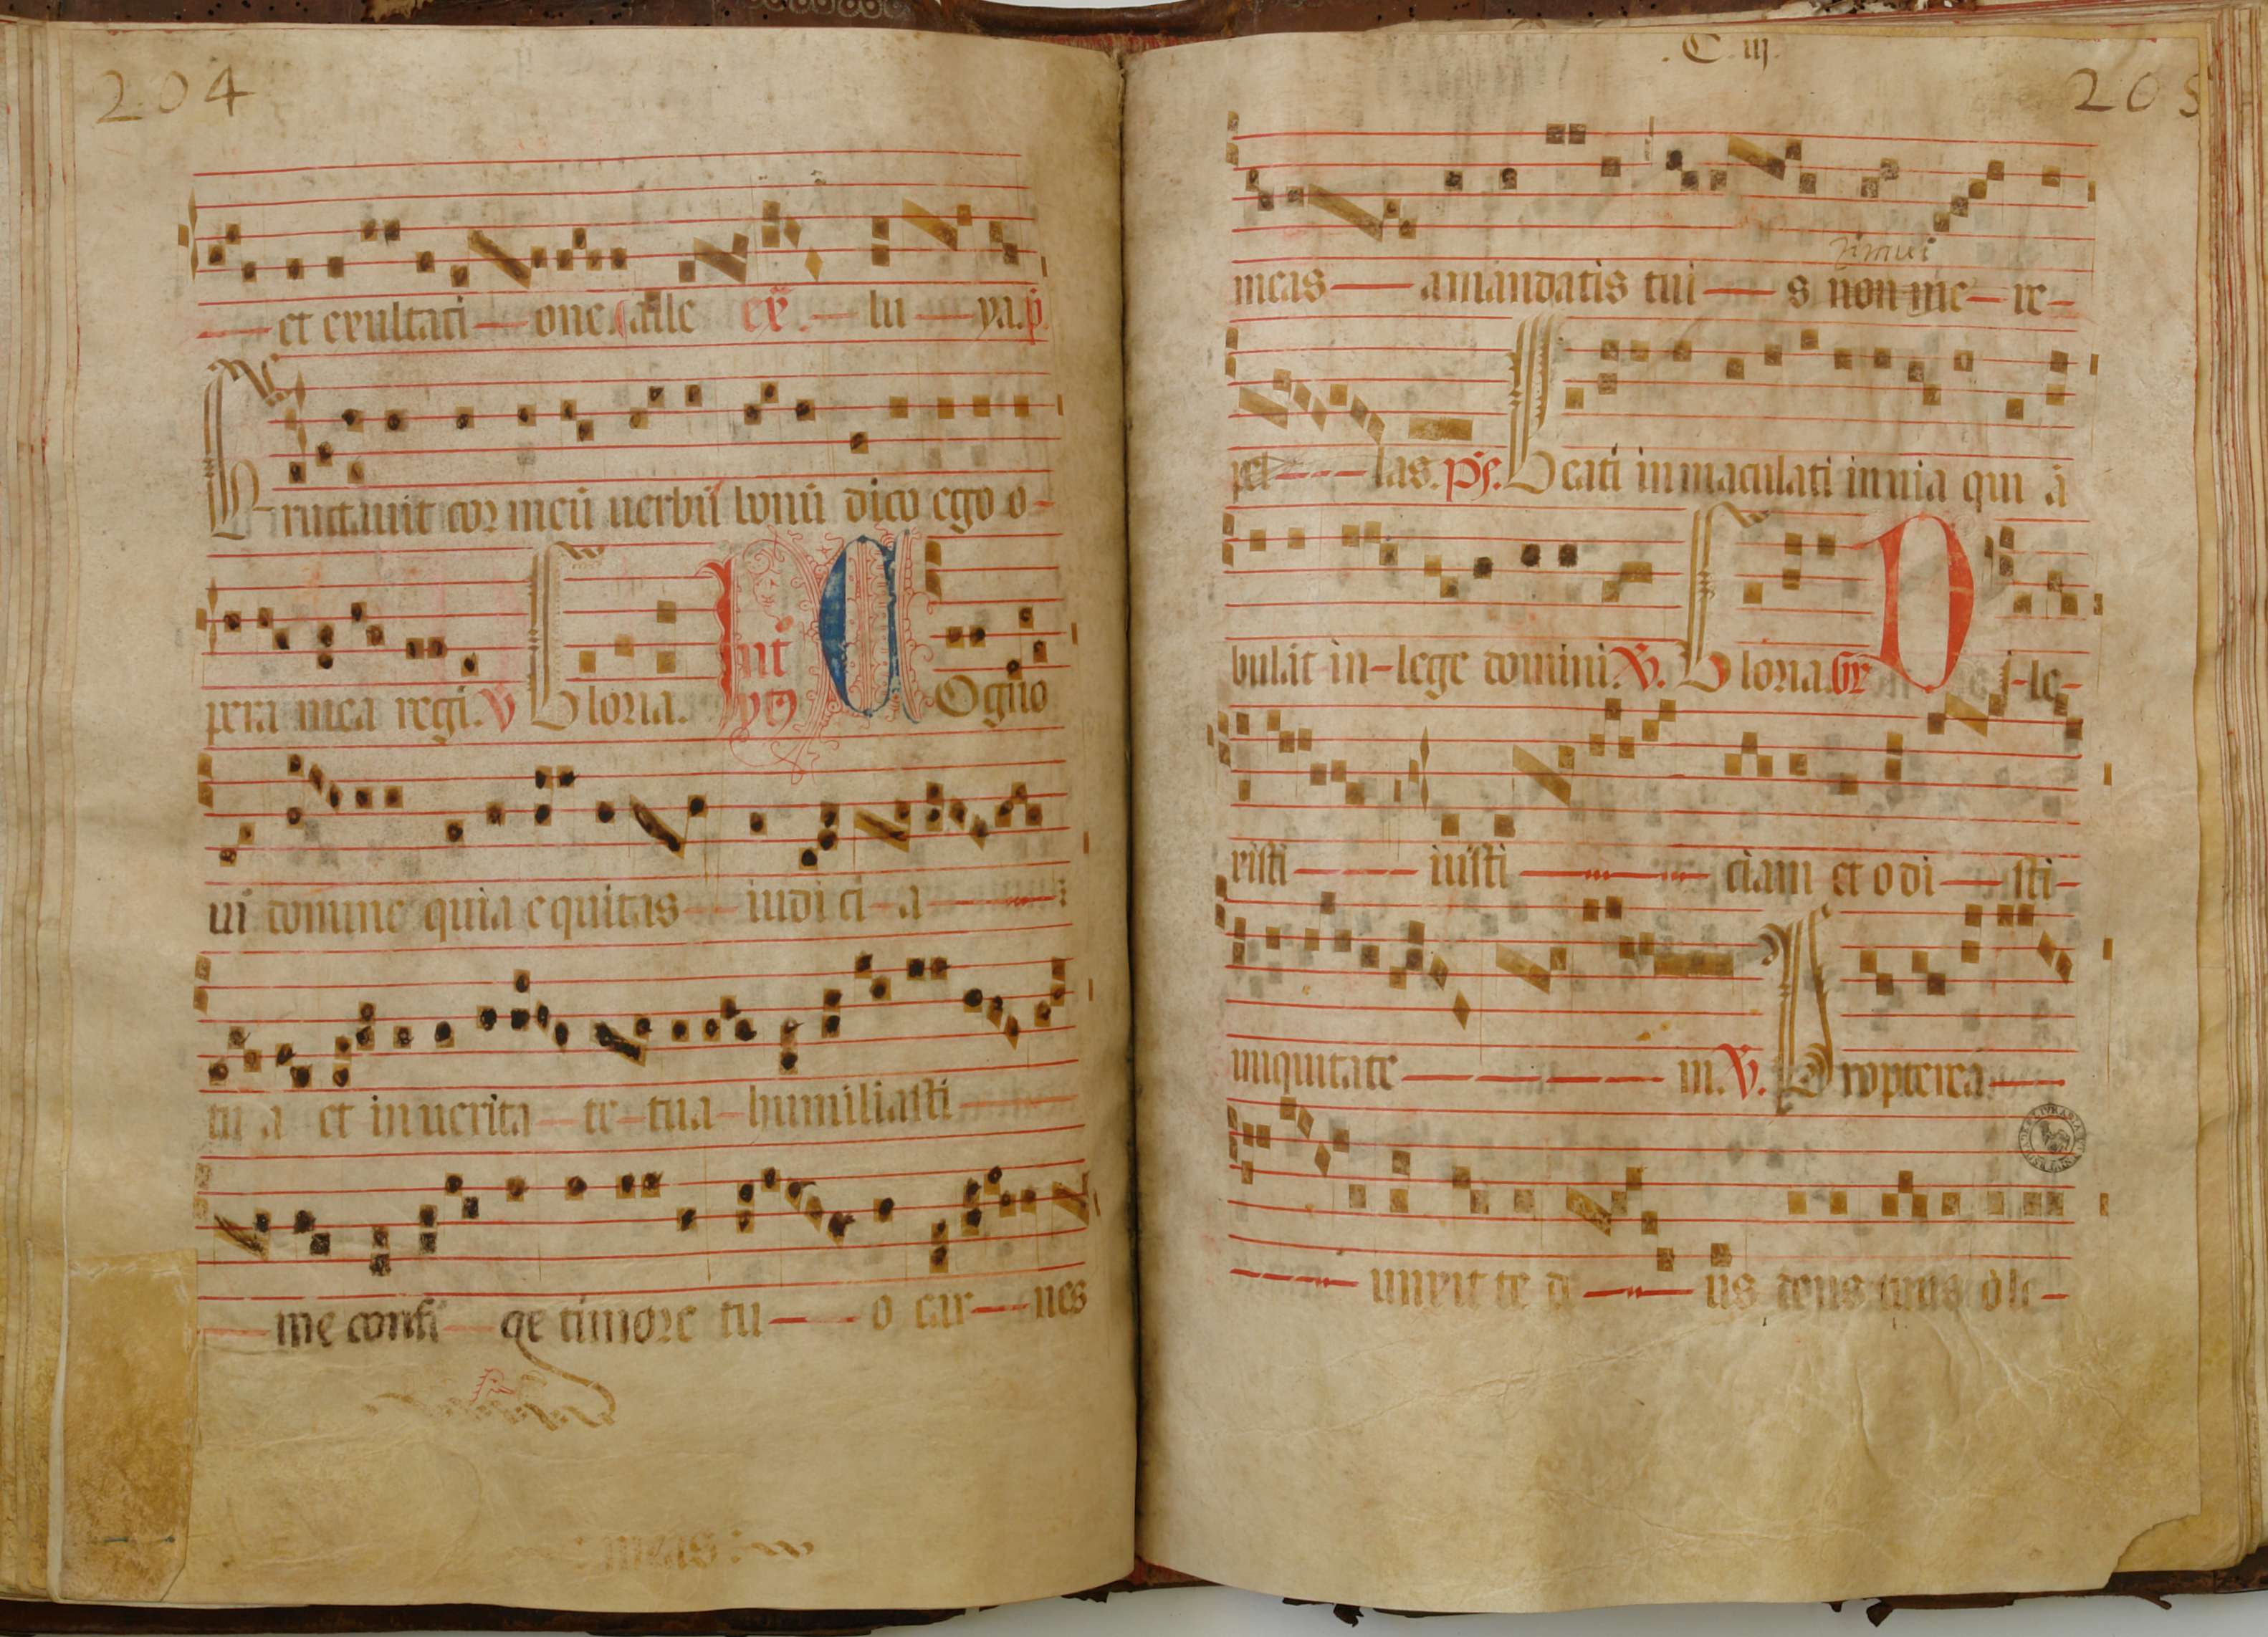 204
et exultati — one. alle eẏ. — lu — ya. p̄
Eructauit cor meū uerbū bonū dico ego o-
pera mea regi. V Gloria. Int ytꝫ COgno
ui domine quia equitas — iudici — a —
tu a et in uerita — te — tua — humiliasti —
— me confi — ge timore tu — o car — nes
: meas :
. C. iij.
205
meas — a mandatis tui — s non me — re-
timui
pel — — — las. ps. Beati inmaculati in uia qui ā
bulāt in-lege domini. V. Gloria. Gr Di-le-
risti — — — iusti — — — ciam et o di — sti-
iniquitate — — — — — m. V. Propterea —
— — — — unxit te de — — us deus tuus ole-